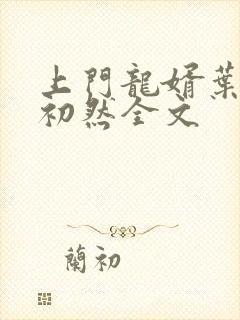 上門龍婿葉
初然全文
蘭初